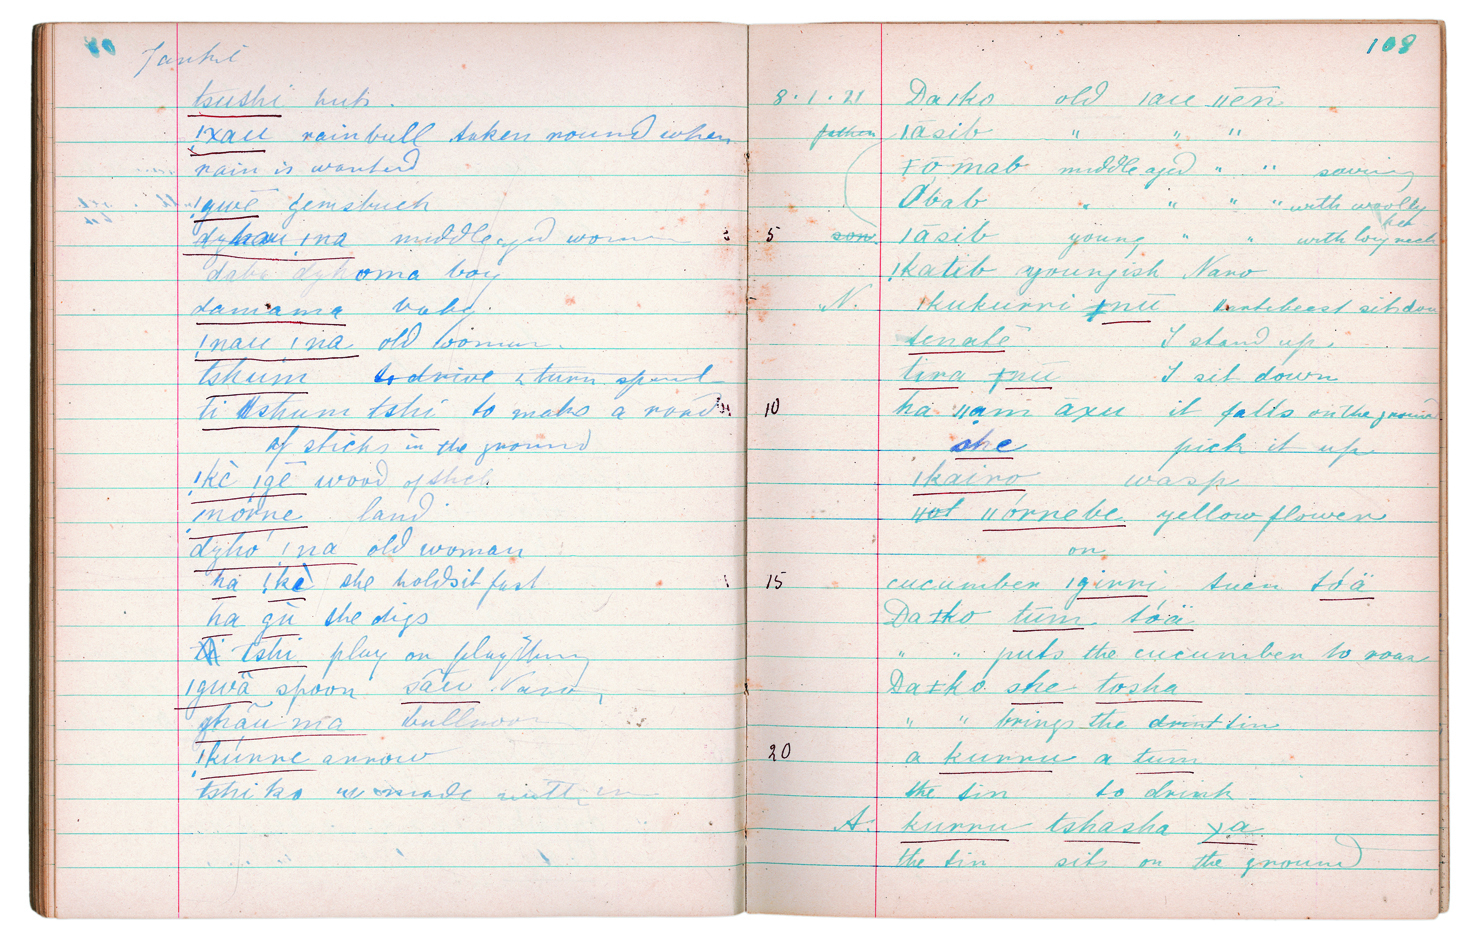 80
tsushi huts.
ǃxau rainbull taken round when
rain is wanted
ǃgwē gemsbuck
dyhau ǃna middle aged woman
daba dyhoma boy
damama baby.
ǃnau ǃna old woman.
tshum to drive & turn
ti ǁshum tshi to make a road
of sticks in the ground
ǃkè ǃgē wood of
ǃnórne land
dyho ǃna old woman
ha ǃkè she holds it fast
ha gù she digs
tshi play on plaything
ǀgwà spoon sāu Naro
ghāu ma
ǃkúrne arrow
tshi ko made with
108
8.1.21 Daǀko old ǀau ǁēn
father ǀāsib " " "
ǂo mab middle aged " " sewing
Øbab " " " " with woolly
hat
5 son ǀasib young " " with long neck
ǃkateb youngish Naro
N. ǀkukurri ǂnū hartebeest sits down
tenatē I stand up.
tira ǂnū I sit down
10 ha ǁam āxu it falls on the ground
she pick it up
ǀkairo wasp
ǁórnebe yellow flower
on
15 cucumber ǀgirri tuen tóä
Daǂko tum tóä
" " puts the cucumber to roast
Daǂko she tosha
" " brings the drint tin
20 a kurru a tum
the tin to drink
A. kurru tshasha ya
the tin sits on the ground